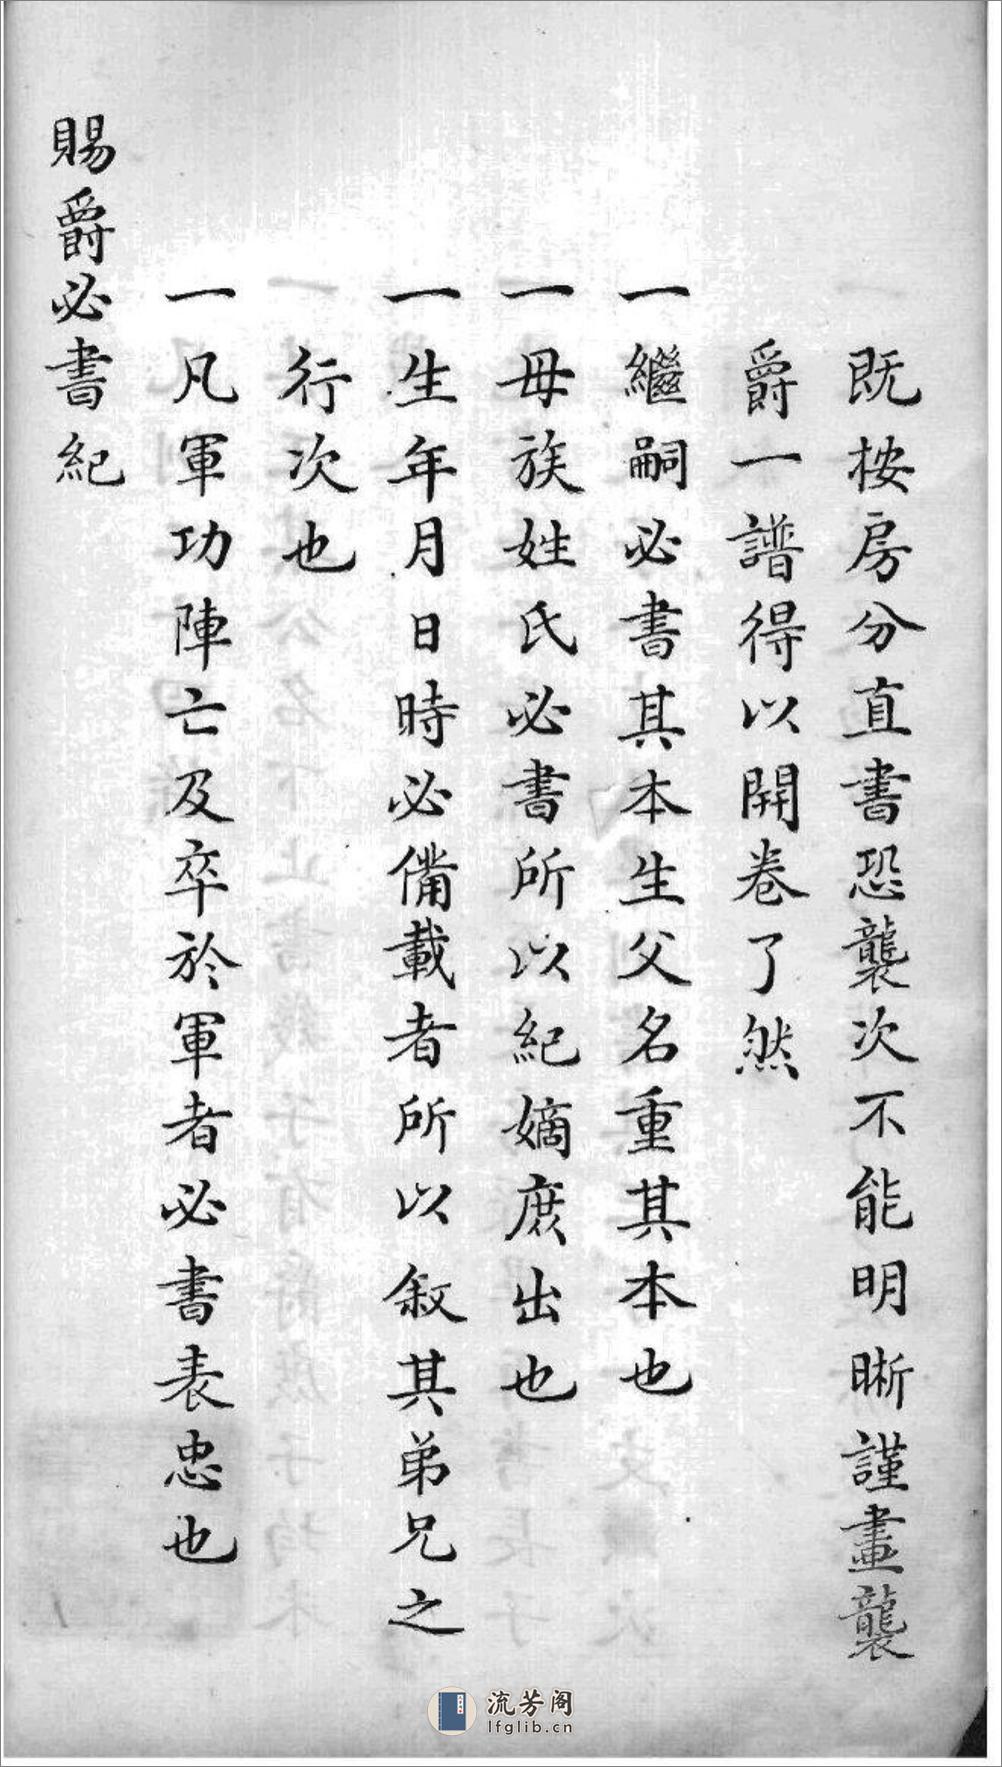 既按房分直書恐襲次不能明晰謹畫襲
爵一譜得以開卷了然
一繼嗣必書其本生父名重其本也
一母族姓氏必書所以紀嫡庶出也
一生年月日時必備載者所以敘其弟兄之
行次也
一凡軍功陣亡及卒於軍者必書表忠也
賜爵必書紀
流芳阁
lfglib.cn